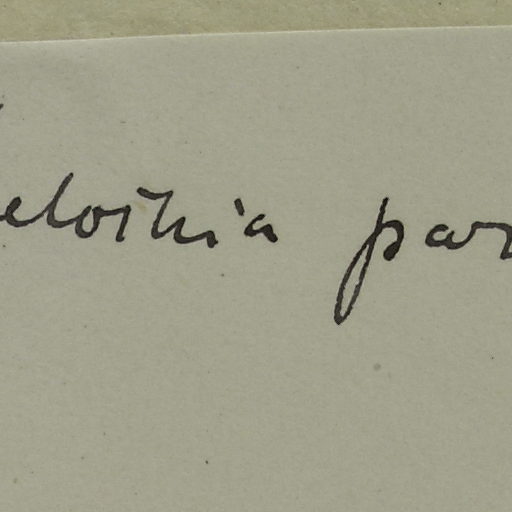 elothia par